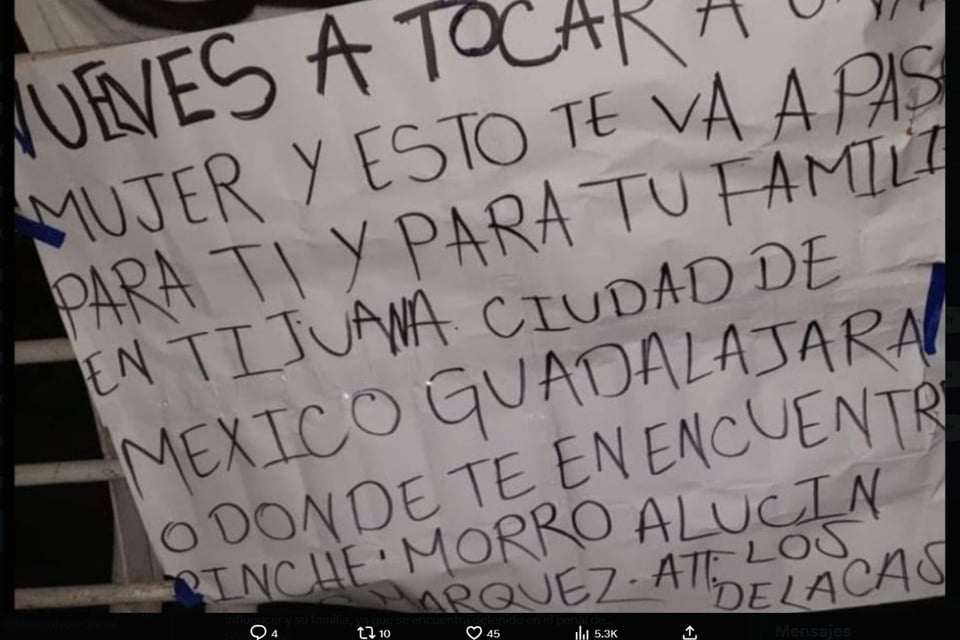 VUELVES A TOCAR A UNA
MUJER Y ESTO TE VA A PAS
PARA TI Y PARA TU FAMILI
EN TIJUANA. CIUDAD DE
MEXICO GUADALAJARA
O DONDE TE EN ENCUENTR
PINCHE MORRO ALUCIN
MARQUEZ. ATT: LOS
DE LA CAS
influencer y su familia, ya que se encuentra detenido en el penal de
Mensajes
4 10 45 5.3K